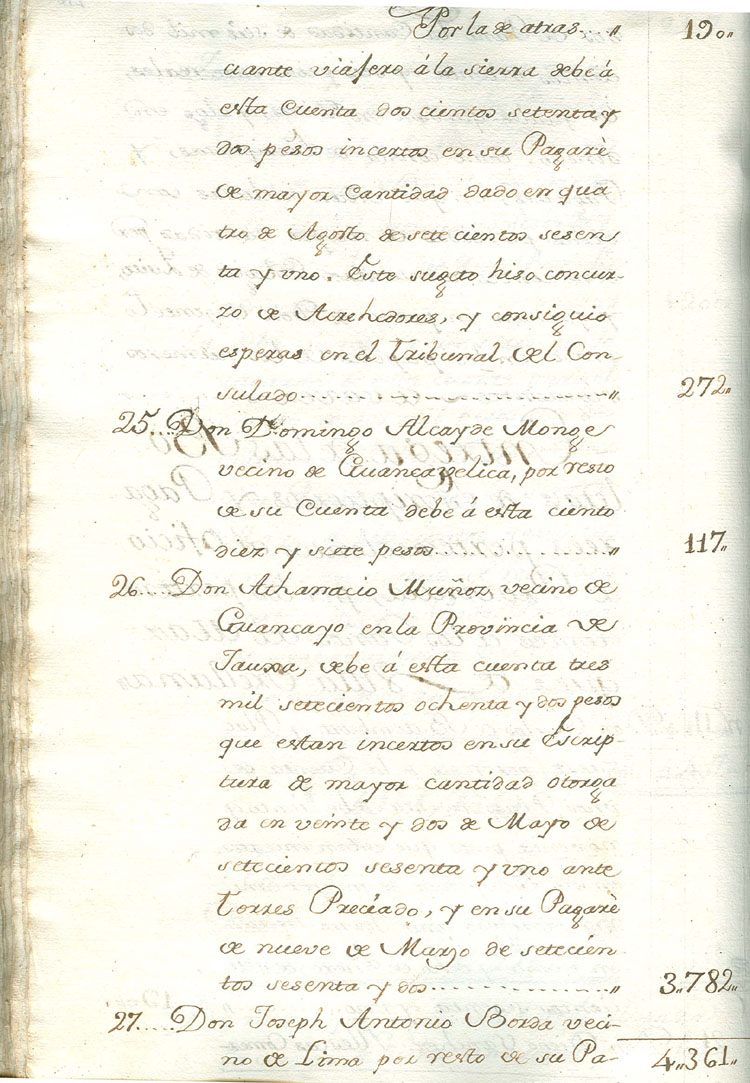 Por la de atras... „ 190„
ciante viajero á la sierra debe á
esta Cuenta dos cientos setenta y
dos pesos incertos en su Pagarè
de mayor Cantidad dado en qua
tro de Agosto de setecientos sesen
ta y uno. Este sugeto hiso concur-
zo de Acrehedores, y consiguio
esperas en el Tribunal del Con-
sulado................„ 272„
25.... Don Domingo Alcayde Monge
vecino de Guancavelica, por resto
de su Cuenta debe á esta ciento
diez y siete pesos........„ 117„
26.... Don Athanacio Muñoz, vecino de
Guancayo en la Provincia de
Jauxa, debe á esta cuenta tres
mil setecientos ochenta y dos pesos
que estan incertos en su Escrip-
tura de mayor cantidad otorga
da en veinte y dos de Mayo de
setecientos sesenta y uno ante
Torres Preciado, y en su Pagarè
de nueve de Marzo de setecien-
tos sesenta y dos............„ 3„782„
27.... Don Joseph Antonio Borda veci-
no de Lima por resto de su Pa- 4„361„